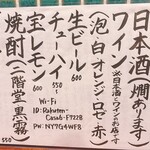 日本酒(燗あります)
ワイン ※日本酒・ワインのお店です
(泡 白 オレンジ・ロゼ・赤)
生ビール 600
チューハイ 550〜
宝レモン 600
焼酎(二階堂、黒霧)
550
Wi-Fi
ID: Rakuten-
Casa6-F7228
PW: NY7G4WF8